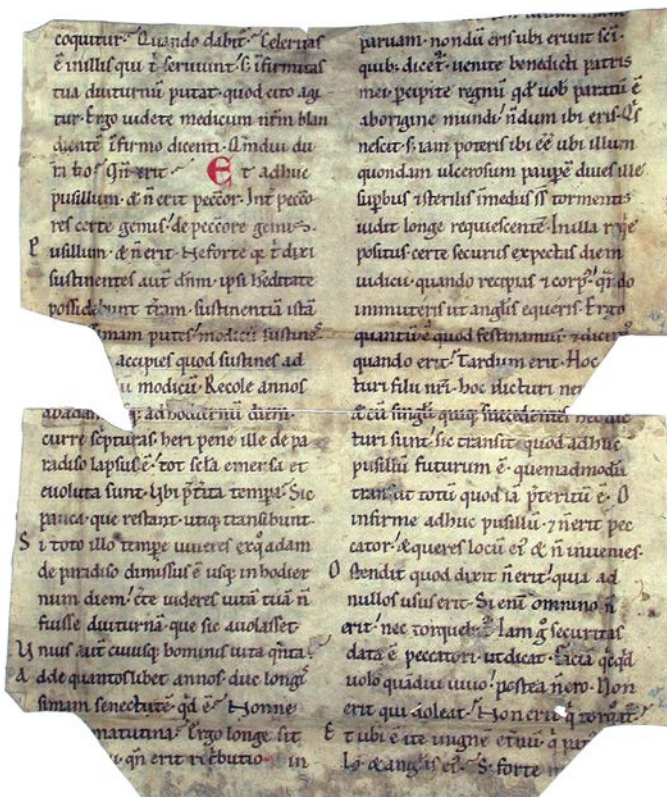 coquitur. Quando dabit᷑. Celeritas
ē inillis qui t̄ seruiunt. s; īfirmitas
tua diuturnū putat. quod cito agi
tur. Ergo uidete medicum nr̄m blan
dientē īfirmo dicenti. Qmdui du
ra bo. Qn̄ erit. Et adhuc
pusillum. & n̄ erit peccōr. Int̄ pecco
res certe gemis. de peccōre gemis.
Pusillum. & n̄ erit. Neforte q; t̄ dixi
sustinentes aut̄ dn̄m. ipsi hēditate
possidebunt t̄ram. sustinentiā istā
mam putes. modicū sustine
accipies quod sustines ad
modicū. Recole annos
abadam usq; ad hodiernū diem.
curre sc̄pturas. heri pene ille de pa
radiso lapsus ē. tot sc̄la emersa et
euoluta sunt. Ubi p̄t̄ita tempa. Sic
pauca. que restant. utiq; transibunt.
Si toto illo tempe uiueres exq̊ adam
de paradiso dimissus ē usq; in hodier
num diem. c̄te uideres uitā tuā n̄
fuisse diuturnā. que sic auolasset.
Unius aut̄ cuiusq; hominis uita q̄nta.
Adde quantoslibet annos. duc longis
simam senectutē. qd̄ ē. Nonne
matutina. Ergo longe sit
qn̄ erit ret̄butio. in
paruam. nondū eris ubi erunt sc̄i.
quib; dicet᷑. uenite benedicti patris
mei. p̄cipite regnū qd̄ uob̄ paratū ē
aborigine mundi. n̄dum ibi eris. Q̊s
nescit. s; iam poteris ibi eē ubi illum
quondam ulcerosum paupē diues ille
sup̄bus & sterilis īmediis s̄s tormentis
uidit longe requiescentē. Inilla req̊e
positus. certe securus expectas diem
iudicii. quando recipias & corp̄. qn̄do
immuteris ut angl̄is equeris. Ergo
quantū ē quod festinamus. & dicim᷒
quando erit. Tardum erit. Hoc
turi filii nr̄i. hoc dicturi ne
& cū singl̄i quiq; succedentes hec dic
turi sunt. sic transit quod adhuc
pusillū futurum ē. quemadmodū
transiit totū quod iā p̄teritū ē. O
infirme adhuc pusillū. & n̄ erit pec
cator. & queres locū ei᷒ & n̄ inuenies.
Ostendit quod dixit n̄ erit. quia ad
nullos usus erit. Si eni omnino n̄
erit. nec torquebit᷑. Iam g̊ securitas
data ē peccatori. ut dicat. faciā q̊cqd̄
uolo quādiu uiuo. postea n̄ ero. Non
erit qui doleat. Non erit q̊
Et ubi ē ite inignē et̄nū. q̊
& angl̄is ei᷒. S; forte